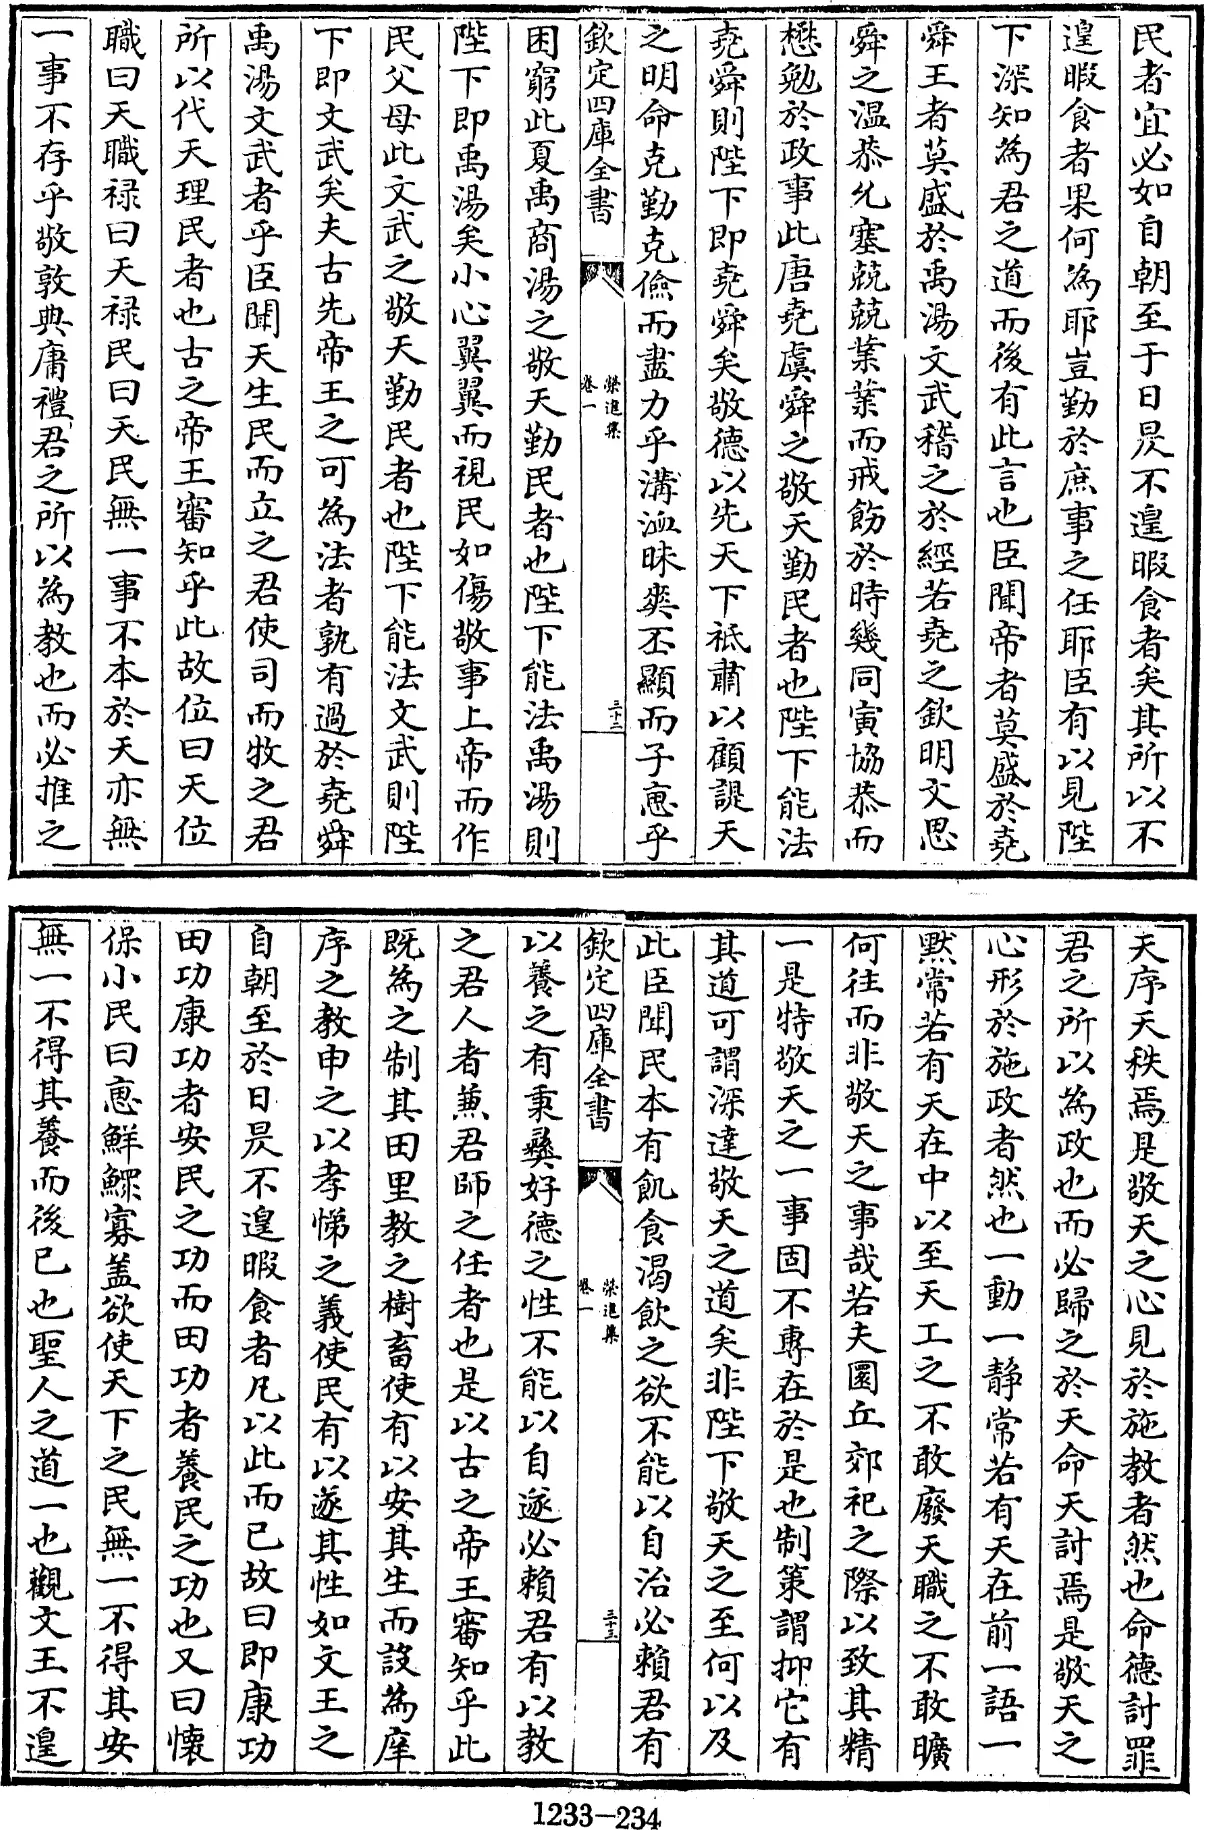 民者宜必如自朝至于日昃不遑暇食者矣其所以不
遑暇食者果何為耶豈勤於庶事之任耶臣有以見陛
下深知為君之道而後有此言也臣聞帝者莫盛於堯
舜王者莫盛於禹湯文武稽之於經若堯之欽明文思
舜之温恭允塞兢兢業業而戒飭於時幾同寅協恭而
懋勉於政事此唐堯虞舜之敬天勤民者也陛下能法
堯舜則陛下即堯舜矣敬德以先天下祗肅以顧諟天
之明命克勤克儉而盡力乎溝洫昧爽丕顯而子惠乎
欽定四庫全書
榮進集
卷一
三十二
困窮此夏禹商湯之敬天勤民者也陛下能法禹湯則
陛下即禹湯矣小心翼翼而視民如傷敬事上帝而作
民父母此文武之敬天勤民者也陛下能法文武則陛
下即文武矣夫古先帝王之可為法者孰有過於堯舜
禹湯文武者乎臣聞天生民而立之君使司而牧之君
所以代天理民者也古之帝王審知乎此故位曰天位
職曰天職禄曰天禄民曰天民無一事不本於天亦無
一事不存乎敬敦典庸禮君之所以為教也而必推之
天序天秩焉是敬天之心見於施教者然也命德討罪
君之所以為政也而必歸之於天命天討焉是敬天之
心形於施政者然也一動一静常若有天在前一語一
默常若有天在中以至天工之不敢廢天職之不敢曠
何往而非敬天之事哉若夫圜丘郊祀之際以致其精
一是特敬天之一事固不專在於是也制策謂抑它有
其道可謂深達敬天之道矣非陛下敬天之至何以及
此臣聞民本有飢食渴飲之欲不能以自治必賴君有
欽定四庫全書
榮進集
卷一
三十三
以養之有秉彝好德之性不能以自遂必賴君有以教
之君人者兼君師之任者也是以古之帝王審知乎此
既為之制其田里教之樹畜使有以安其生而設為庠
序之教申之以孝悌之義使民有以遂其性如文王之
自朝至於日昃不遑暇食者凡以此而已故曰即康功
田功康功者安民之功而田功者養民之功也又曰懷
保小民曰惠鮮鰥寡盖欲使天下之民無一不得其安
無一不得其養而後已也聖人之道一也觀文王不遑
1233-234